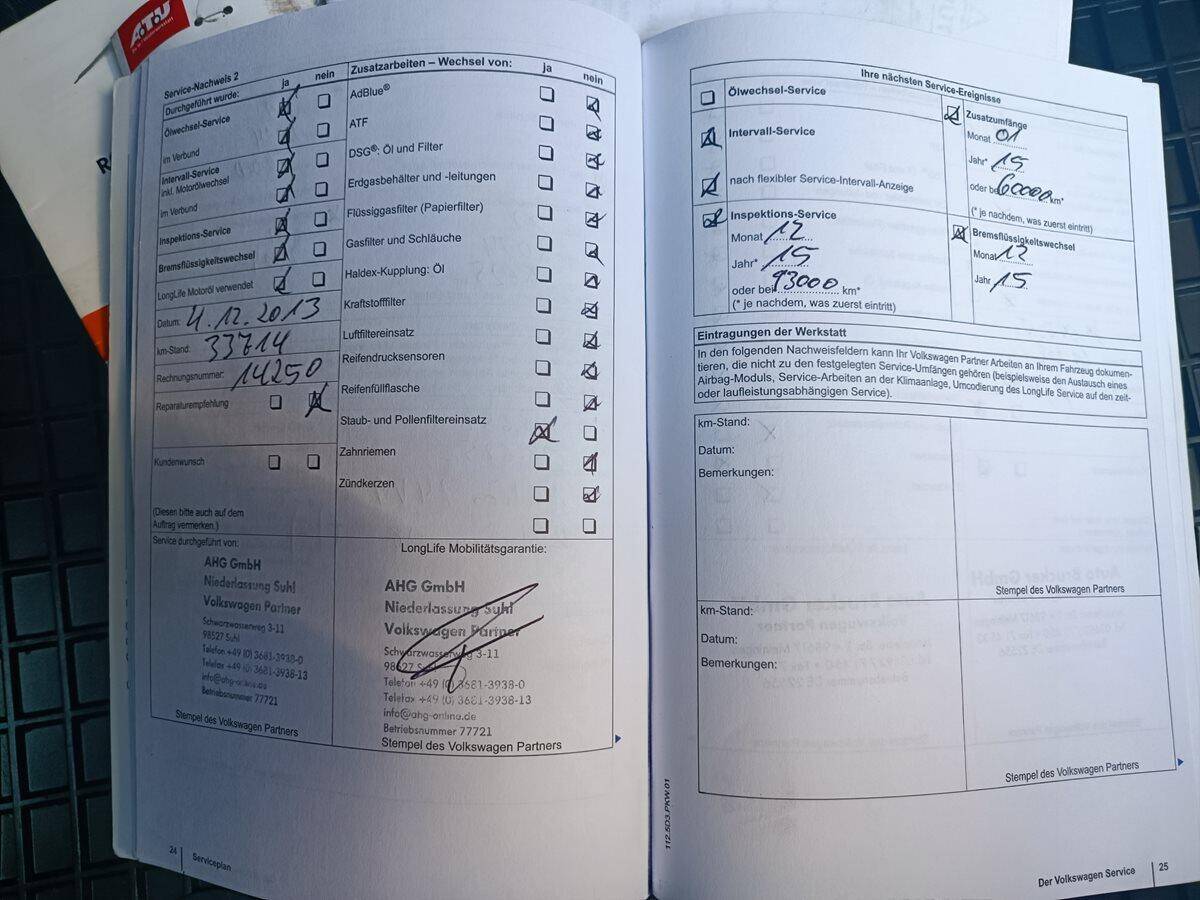 A.T.U
R
Service-Nachweis 2
Durchgeführt wurde: ja nein
Ölwechsel-Service
im Verbund
Intervall-Service
inkl. Motorölwechsel
im Verbund
Inspektions-Service
Bremsflüssigkeitswechsel
LongLife Motoröl verwendet
Datum: 4.12.2013
km-Stand: 33714
Rechnungsnummer: 14250
Reparaturempfehlung
Kundenwunsch
(Diesen bitte auch auf dem
Auftrag vermerken.)
Zusatzarbeiten – Wechsel von: ja nein
AdBlue®
ATF
DSG®: Öl und Filter
Erdgasbehälter und -leitungen
Flüssiggasfilter (Papierfilter)
Gasfilter und Schläuche
Haldex-Kupplung: Öl
Kraftstofffilter
Luftfiltereinsatz
Reifendrucksensoren
Reifenfüllflasche
Staub- und Pollenfiltereinsatz
Zahnriemen
Zündkerzen
Service durchgeführt von:
AHG GmbH
Niederlassung Suhl
Volkswagen Partner
Schwarzwasserweg 3-11
98527 Suhl
Telefon +49 (0) 3681-3938-0
Telefax +49 (0) 3681-3938-13
info@ahg-online.de
Betriebsnummer 77721
Stempel des Volkswagen Partners
LongLife Mobilitätsgarantie:
AHG GmbH
Niederlassung Suhl
Volkswagen Partner
Schwarzwasserweg 3-11
98527 Suhl
Telefon +49 (0) 3681-3938-0
Telefax +49 (0) 3681-3938-13
info@ahg-online.de
Betriebsnummer 77721
Stempel des Volkswagen Partners
24 Serviceplan
Ihre nächsten Service-Ereignisse
Ölwechsel-Service
Intervall-Service
nach flexibler Service-Intervall-Anzeige
Inspektions-Service
Monat 12
Jahr* 15
oder bei 93000 km*
(* je nachdem, was zuerst eintritt)
Zusatzumfänge
Monat 01
Jahr* 15
oder bei 60000 km*
(* je nachdem, was zuerst eintritt)
Bremsflüssigkeitswechsel
Monat 12
Jahr 15
Eintragungen der Werkstatt
In den folgenden Nachweisfeldern kann Ihr Volkswagen Partner Arbeiten an Ihrem Fahrzeug dokumen-
tieren, die nicht zu den festgelegten Service-Umfängen gehören (beispielsweise den Austausch eines
Airbag-Moduls, Service-Arbeiten an der Klimaanlage, Umcodierung des LongLife Service auf den zeit-
oder laufleistungsabhängigen Service).
km-Stand:
Datum:
Bemerkungen:
Stempel des Volkswagen Partners
km-Stand:
Datum:
Bemerkungen:
Stempel des Volkswagen Partners
112.5D3.PKW.01
Der Volkswagen Service 25